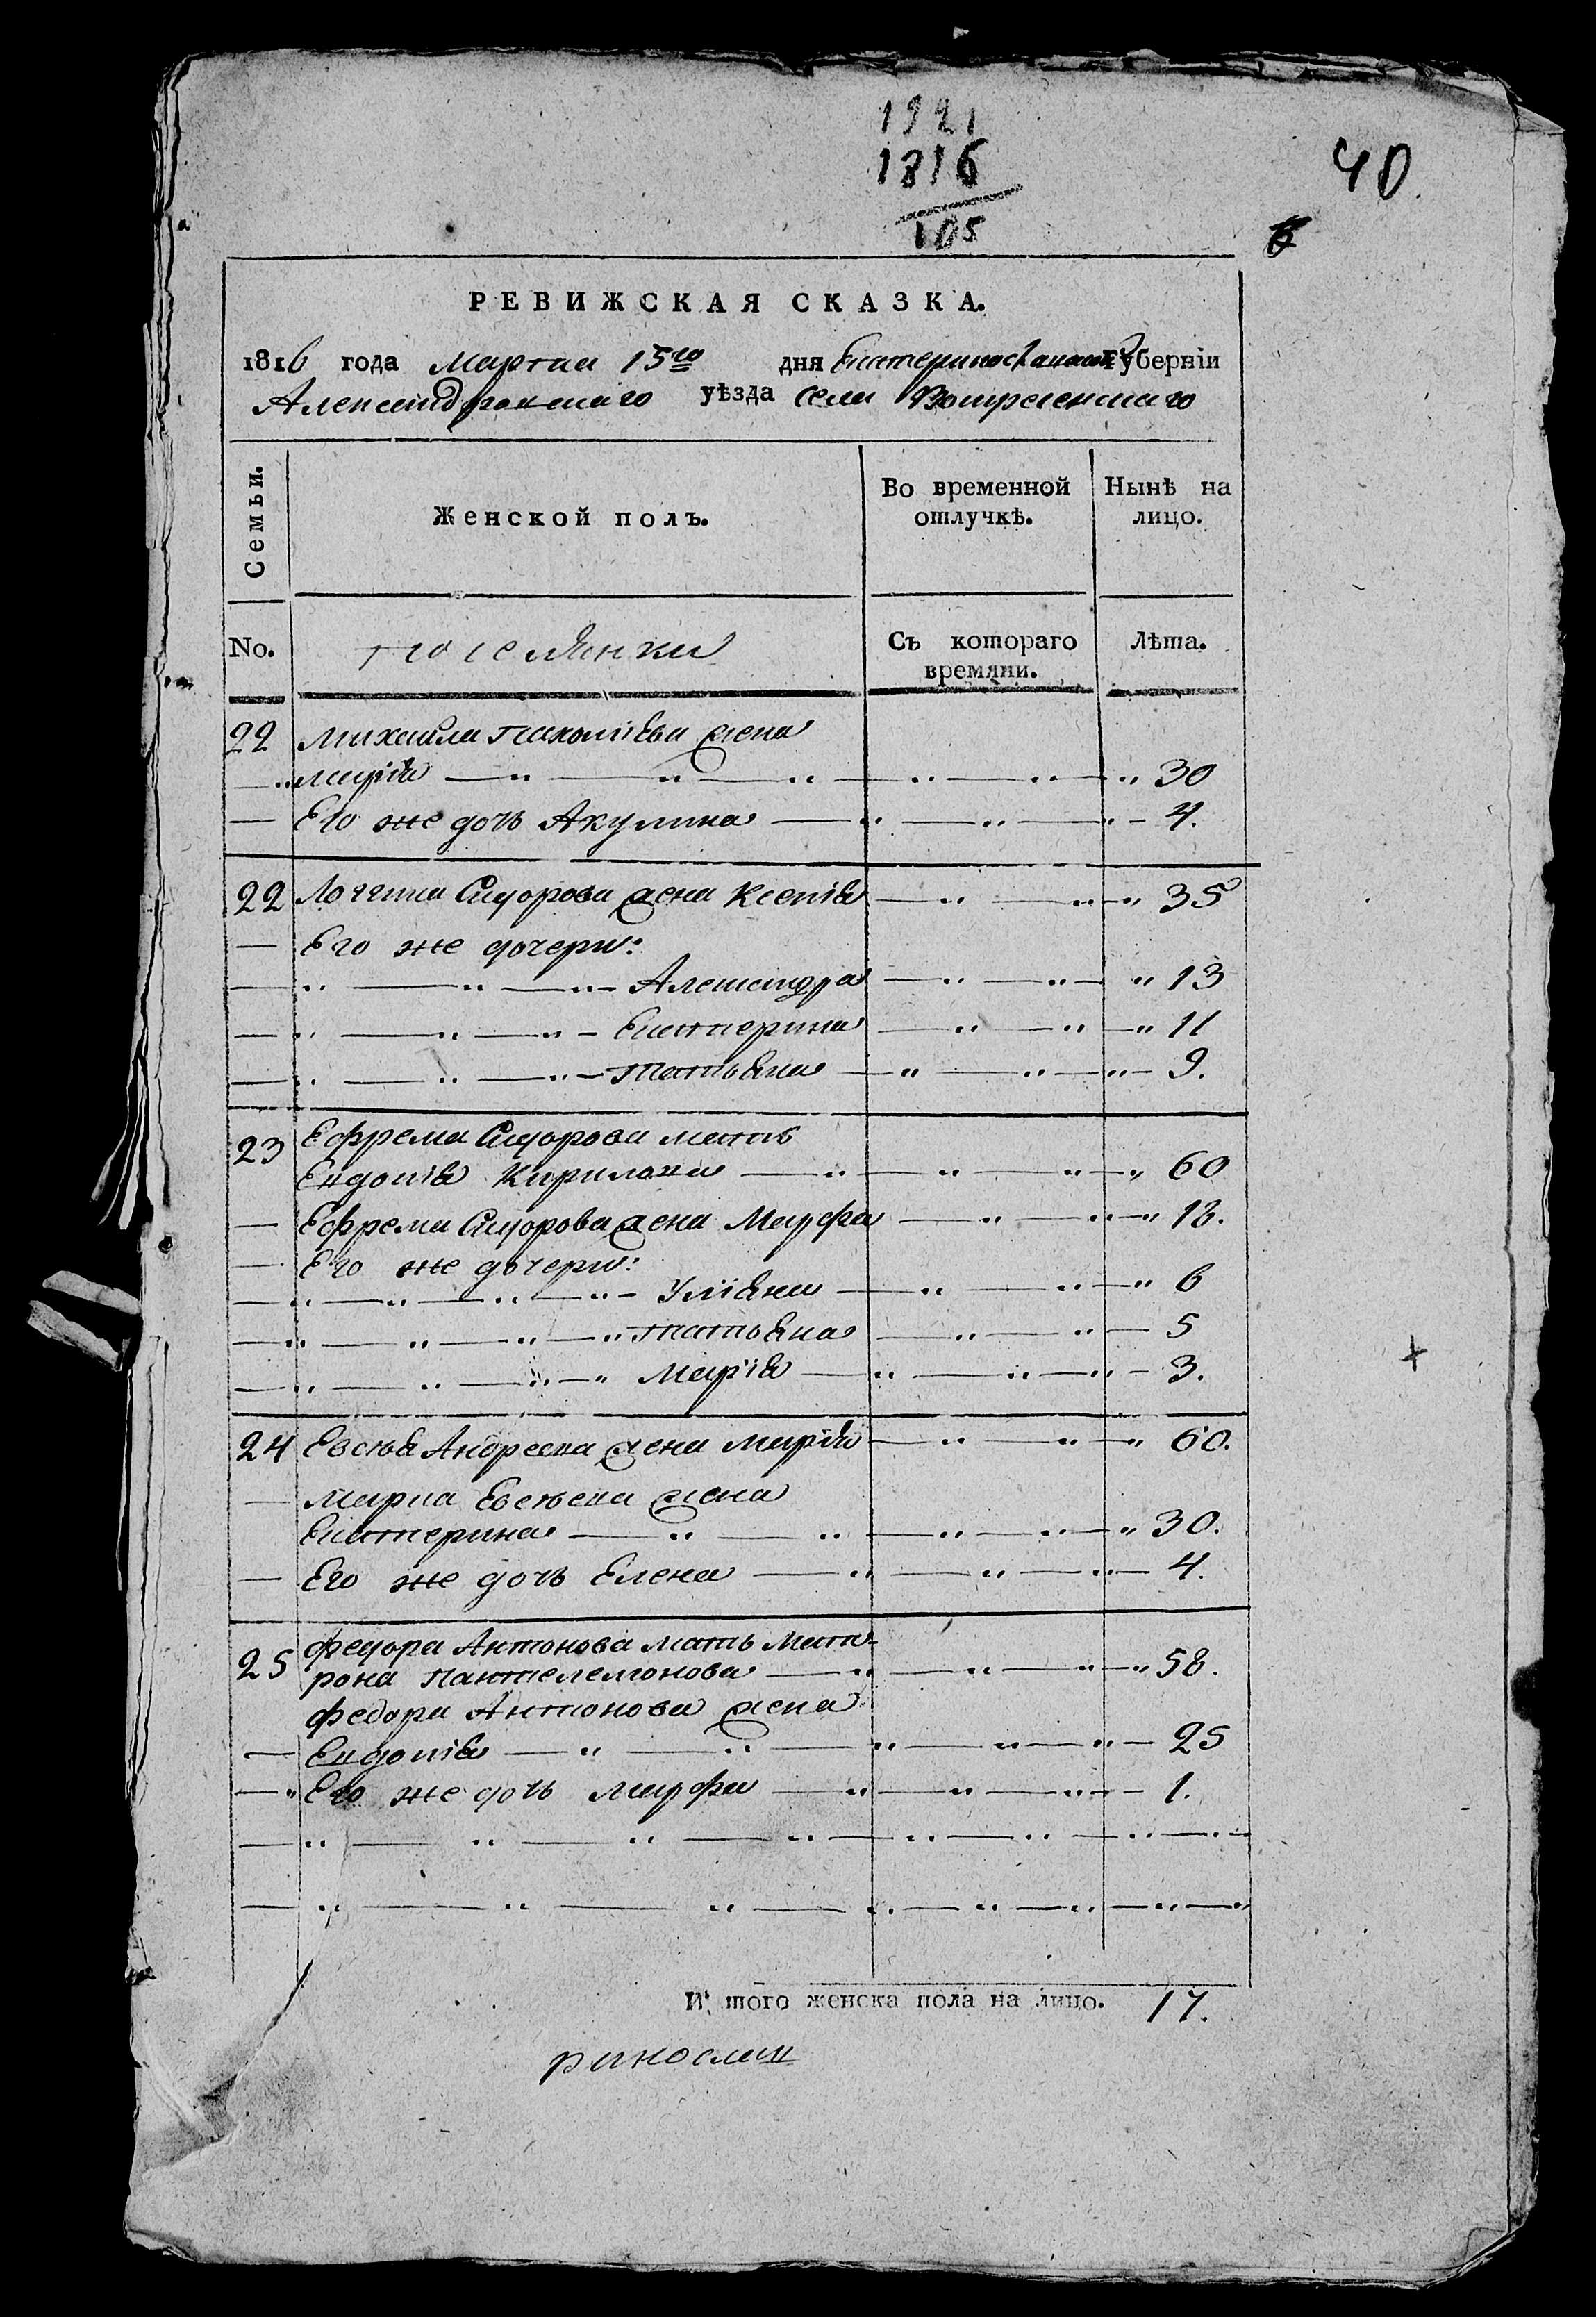 1921
1816
105
40
6
РЕВИЖСКАЯ СКАЗКА.
1816 года Марта 15го дня Екатеринославской Губернїи
Александровскаго уѣзда села Воскресенскаго
Семьи.
Женской полъ.
Во временной отлучкѣ.
Нынѣ на лицо.
No.
поселянки
Съ котораго времяни.
Лѣта.
22 Михаила жена
Марїя 30
Его же дочь Акулина 4.
22 Логгина Сидорова жена Ксенїя 35
Его же дочери:
Александра 13
Екатерина 11
Татьяна 9.
23 Ефрема Сидорова мать
Евдокїя Кирилова 60
Ефрема Сидорова жена Марфа 18.
Его же дочери:
Улїяна 6
Татьяна 5
Марїя 3.
24 Евсѣя Андреева жена Марїя 60.
Марка Евсѣева жена
Екатерина 30.
Его же дочь Елена 4.
25 Федора Антонова мать Мат-
рона Пантелемонова 58.
Федора Антонова жена
Евдокїя 25
Его же дочь Марфа 1.
И того женска пола на лицо. 17.